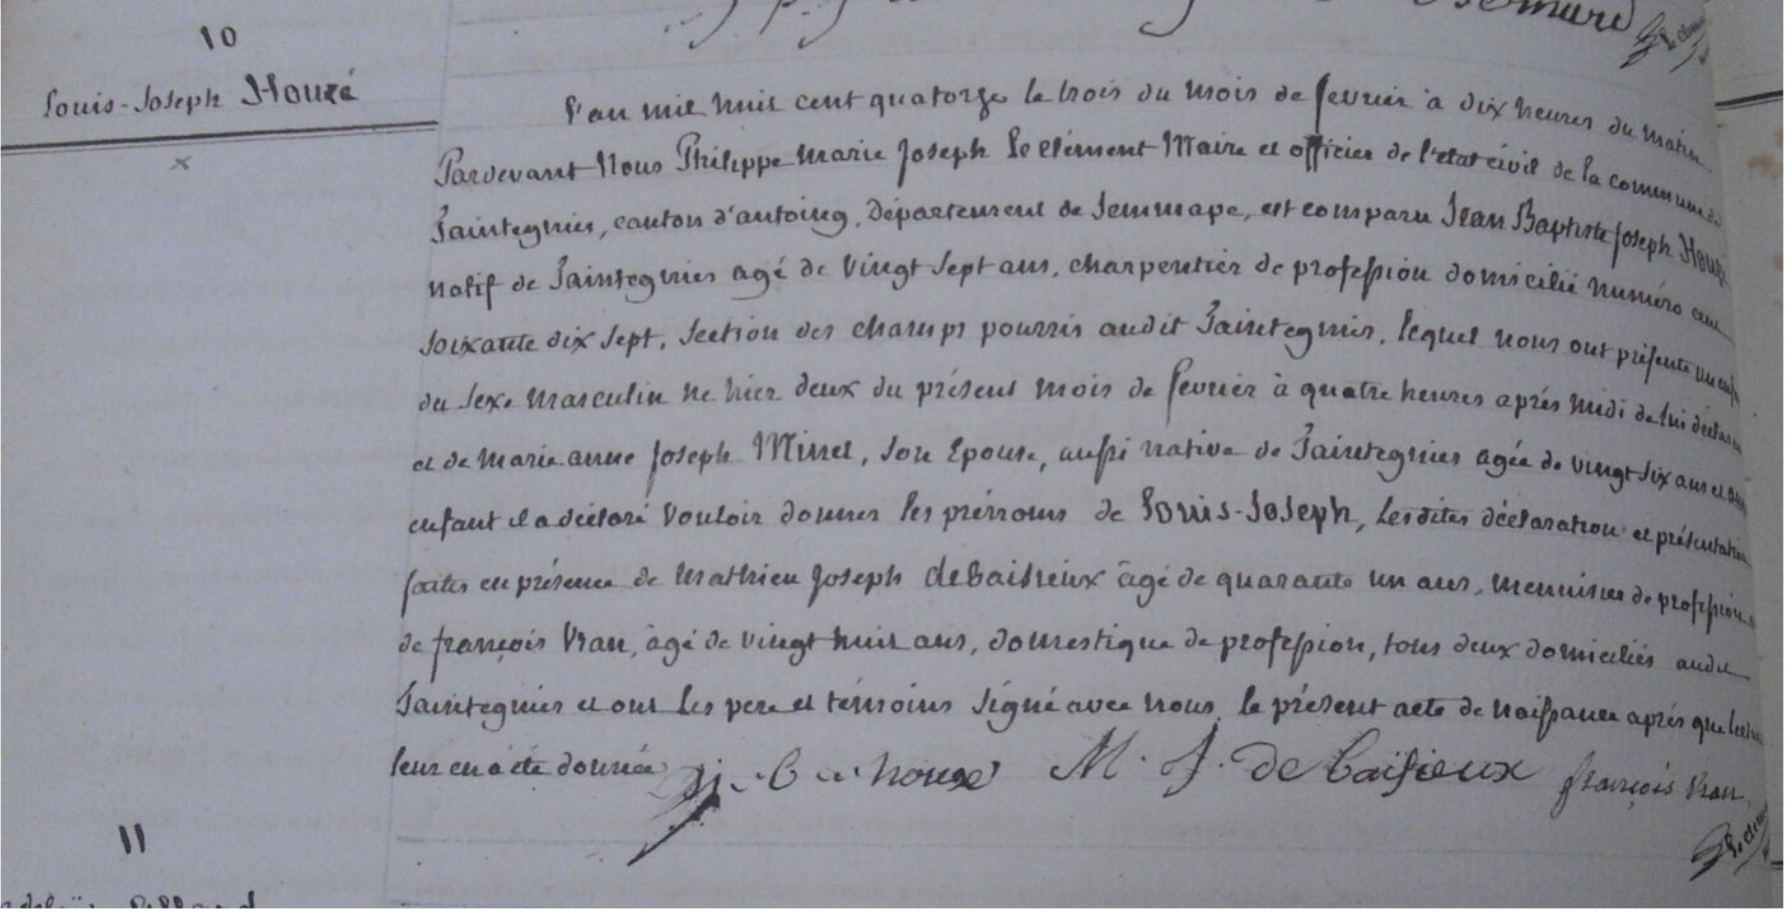 10
Louis-Joseph Houzé
L'an mil huit cent quatorze le trois du mois de fevrier à dix heures du matin
Pardevant Nous Philippe Marie Joseph Le Clément Maire et officier de l'etat civil de la commune de
Taintegnies, canton d'antoing, Département de Jemmape, est comparu Jean Baptiste Joseph Houzé
natif de Taintegnies agé de vingt sept ans, charpentier de profession domicilié numéro cent
soixante dix sept, Section des champs pourris audit Taintegnies, lequel nous ont présenté un enfant
du sexe masculin né hier deux du présent mois de fevrier à quatre heures après midi de lui déclarant
et de Marie anne Joseph Minet, son Epouse, aussi native de Taintegnies agée de vingt six ans et
enfant il a déclaré vouloir donner les prénoms de Louis-Joseph, Lesdites déclaration et présentation
faites en présence de Mathieu Joseph debaisieux âgé de quarante un ans, menuisier de profession
de françois Vran, âgé de vingt huit ans, domestique de profession, tous deux domiciliés audit
Taintegnies et ont les pere et témoins signé avec nous le présent acte de naissance après que lecture
leur en a été donnée j. b. houzé M. J. de baisieux françois Vran
Le Clément
11